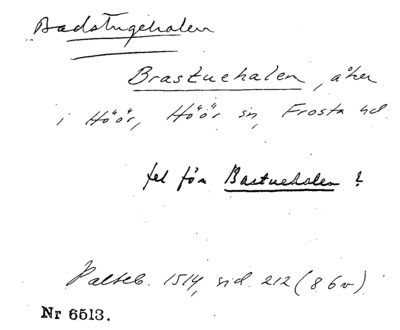 Badstugehalen
Brastuehalen, åker
i Höör, Höör sn, Frosta hd.
fel för Bastuehalen?
Palteb. 1514, sid. 212 (86v)
Nr 6513.